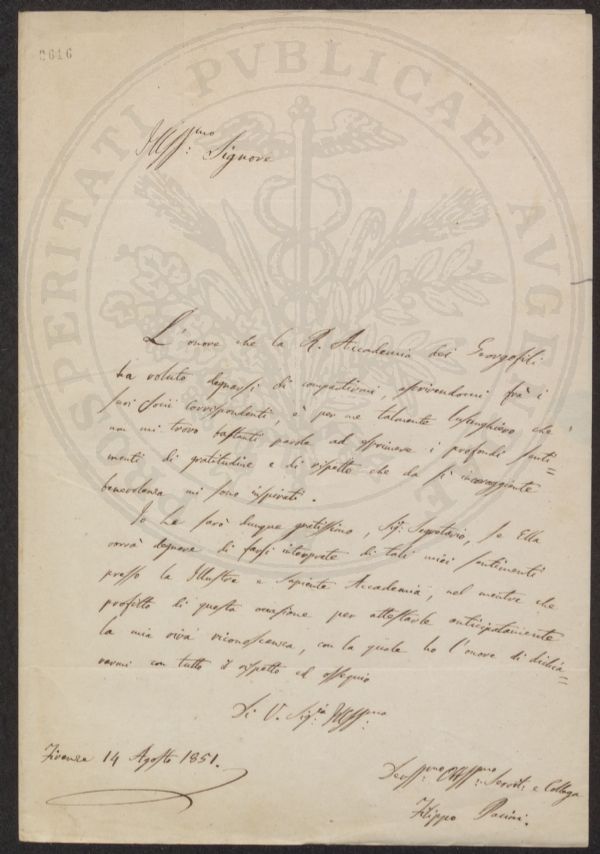 2616
PROSPERITATI PVBLICAE AVGENDAE
Illss:mo Signore
L'onore che la R. Accademia dei Georgofili
ha voluto degnarsi di compartirmi, ascrivendomi frà i
suoi Socii Corrispondenti, è per me talmente lusinghiero che
non mi trovo bastanti parole ad esprimere i profondi senti=
menti di gratitudine e di rispetto che da sì incoraggiante
benevolenza mi sono inspirati.
Io Le sarò dunque gratissimo, Sig: Segretario, se Ella
vorrà degnare di farsi interprete di tali miei sentimenti
presso la Illustre e Sapiente Accademia, nel mentre che
profitto di questa occasione per attestarle anticipatamente
la mia viva riconoscenza, con la quale ho l'onore di dichia=
rarmi con tutto il rispetto ed ossequio
Di V. Sig:ia Illss:mo
Firenze 14 Agosto 1851.
Devss:mo Obss:mo Servit: e Collega
Filippo Pacini.